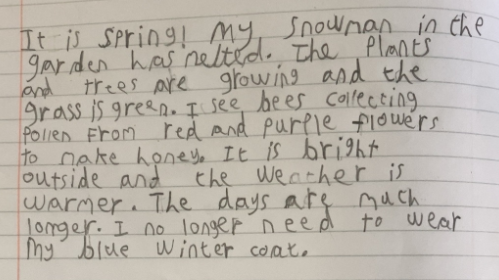 It is spring! My snowman in the
garden has melted. The plants
and trees are growing and the
grass is green. I see bees collecting
pollen from red and purple flowers
to make honey. It is bright
outside and the weather is
warmer. The days are much
longer. I no longer need to wear
my blue winter coat.